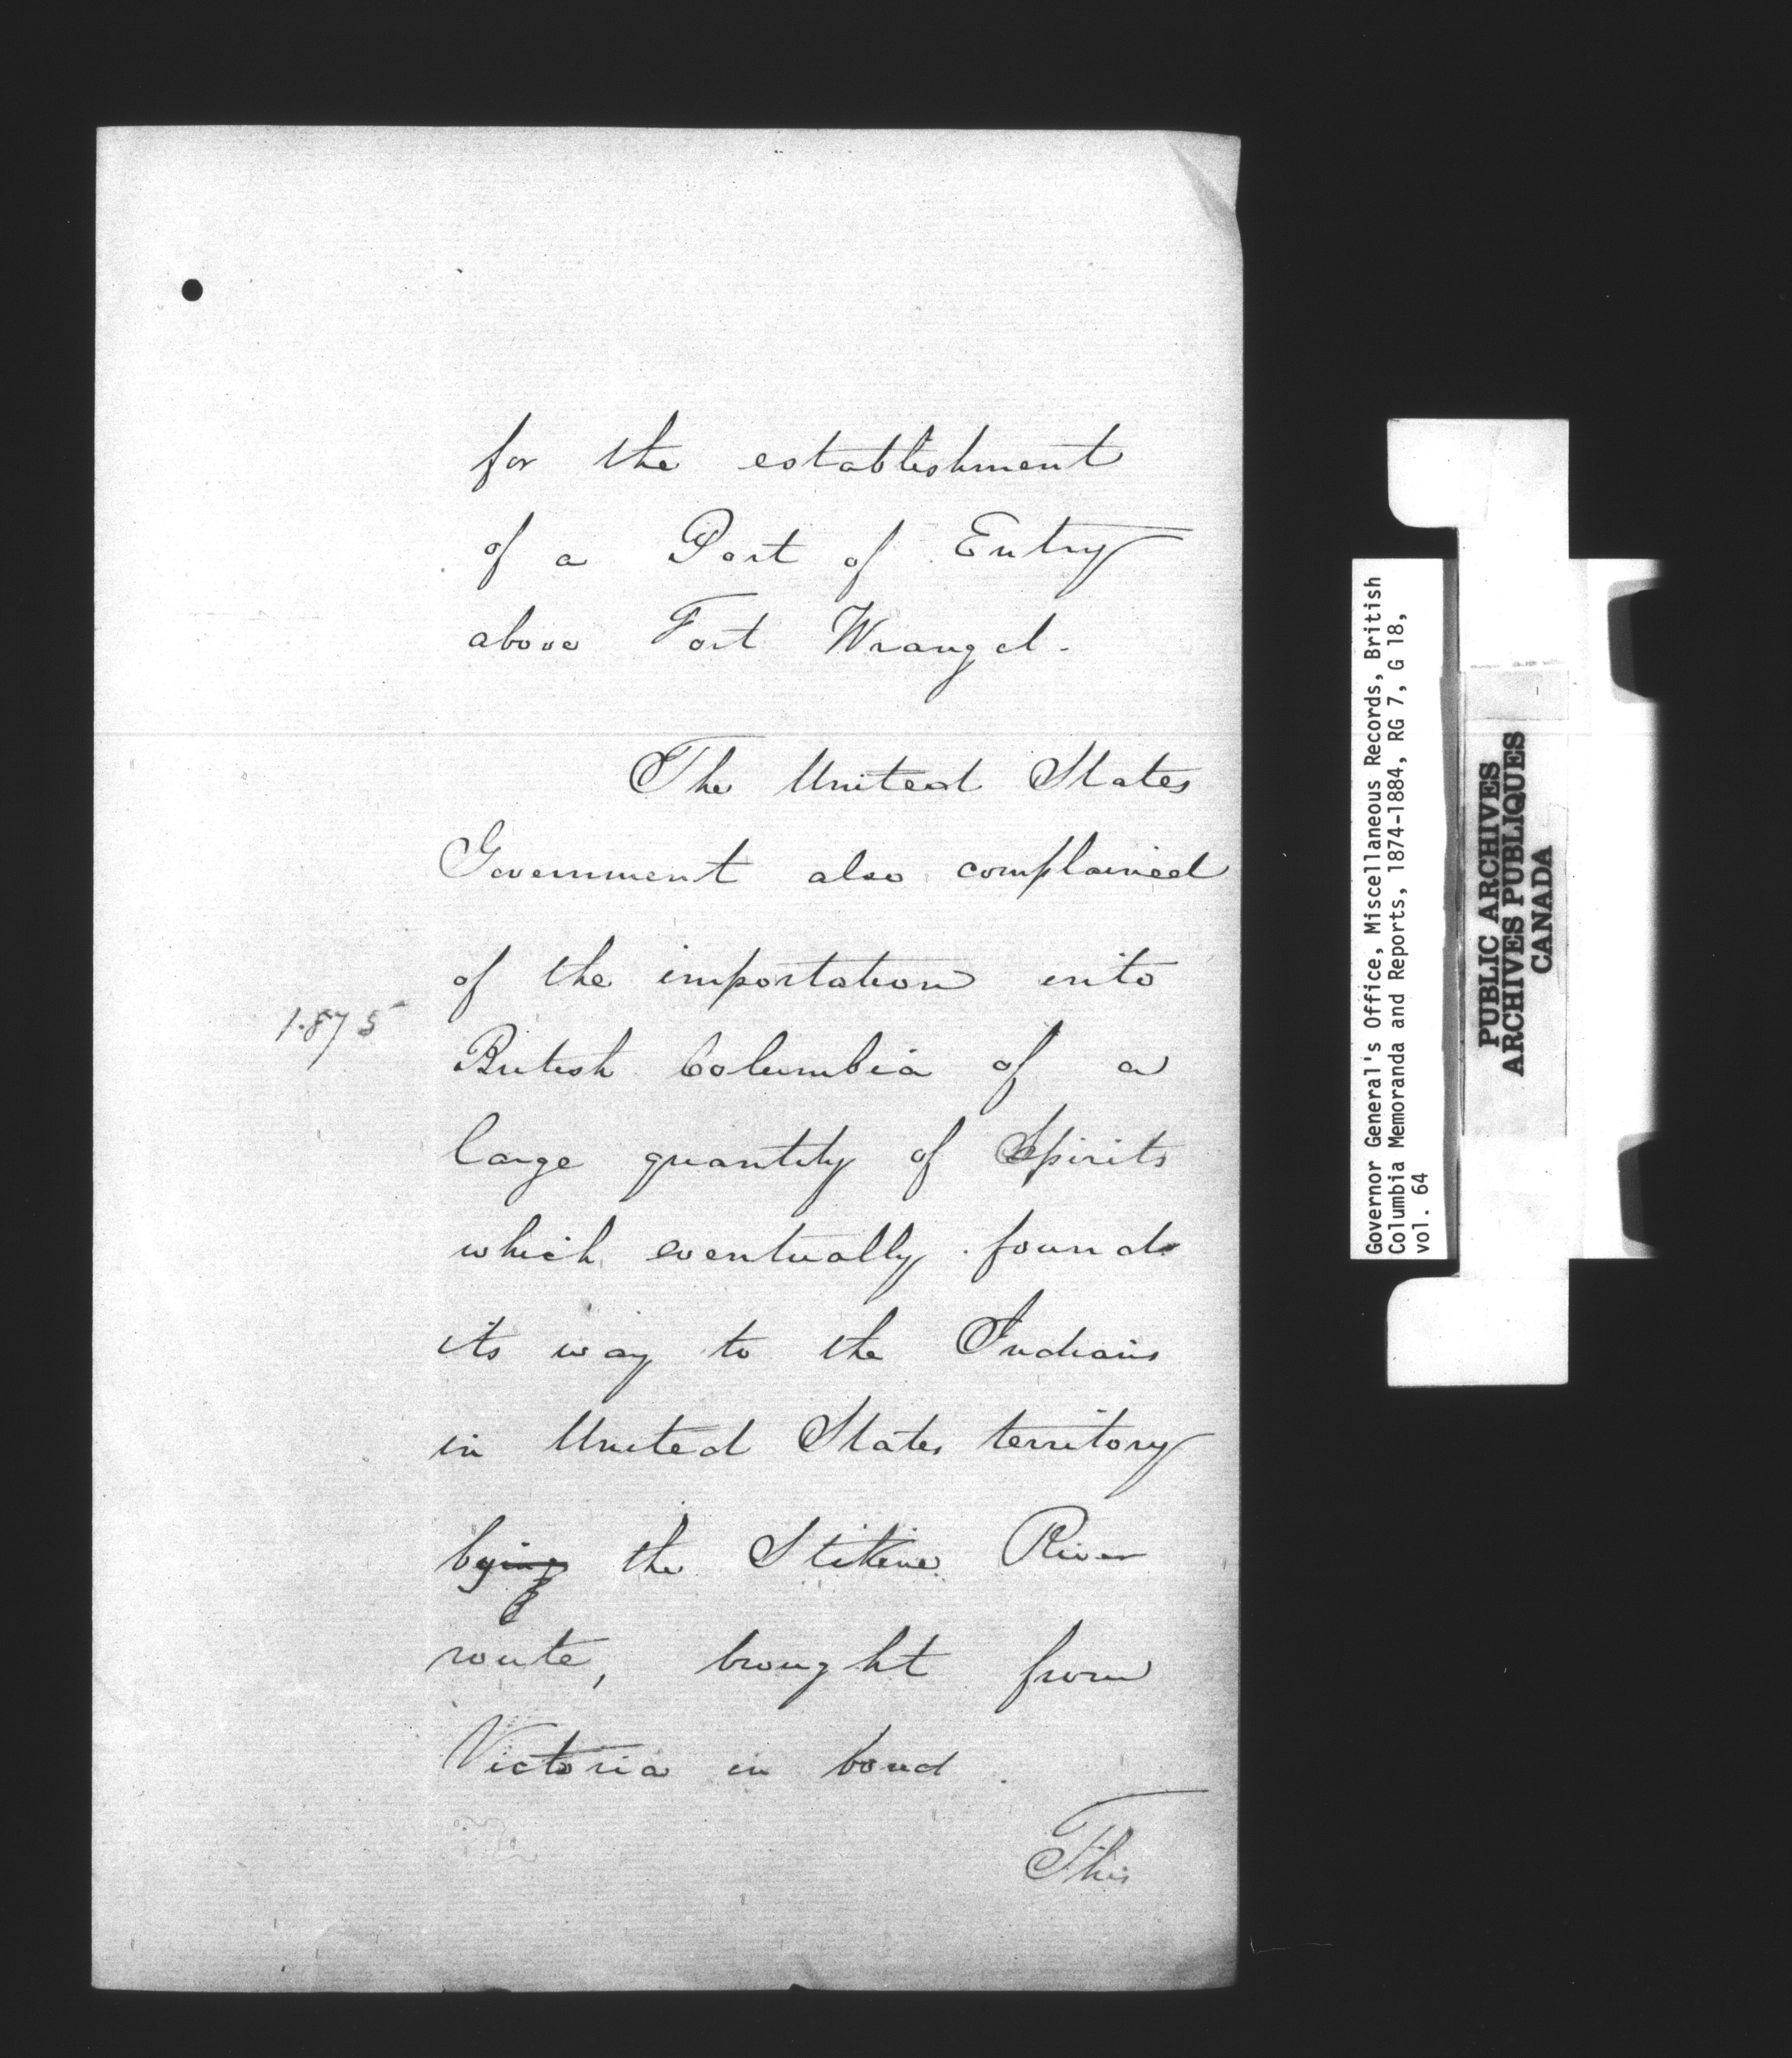 for the establishment
of a Port of Entry
above Fort Wrangel.
The United States
Government also complained
of the importation into
1875
British Columbia of a
large quantity of Spirits
which eventually found
its way to the Indians
in United States territory
by the Stikine River
route, brought from
Victoria in bond.
This
Governor General's Office, Miscellaneous Records, British
Columbia Memoranda and Reports, 1874-1884, RG 7, G 18,
vol. 64
PUBLIC ARCHIVES
ARCHIVES PUBLIQUES
CANADA